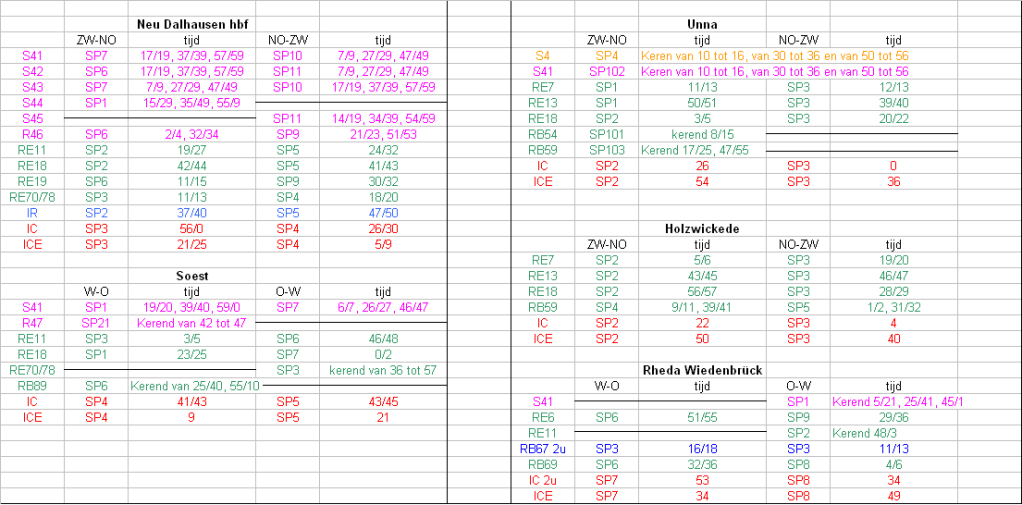 Neu Dalhausen hbf
ZW-NO tijd NO-ZW tijd
S41 SP7 17/19, 37/39, 57/59 SP10 7/9, 27/29, 47/49
S42 SP6 17/19, 37/39, 57/59 SP11 7/9, 27/29, 47/49
S43 SP7 7/9, 27/29, 47/49 SP10 17/19, 37/39, 57/59
S44 SP1 15/29, 35/49, 55/9
S45 SP11 14/19, 34/39, 54/59
R46 SP6 2/4, 32/34 SP9 21/23, 51/53
RE11 SP2 19/27 SP5 24/32
RE18 SP2 42/44 SP5 41/43
RE19 SP6 11/15 SP9 30/32
RE70/78 SP3 11/13 SP4 18/20
IR SP2 37/40 SP5 47/50
IC SP3 56/0 SP4 26/30
ICE SP3 21/25 SP4 5/9
Soest
W-O tijd O-W tijd
S41 SP1 19/20, 39/40, 59/0 SP7 6/7, 26/27, 46/47
R47 SP21 Kerend van 42 tot 47
RE11 SP3 3/5 SP6 46/48
RE18 SP1 23/25 SP7 0/2
RE70/78 SP3 kerend van 36 tot 57
RB89 SP6 Kerend van 25/40, 55/10
IC SP4 41/43 SP5 43/45
ICE SP4 9 SP5 21
Unna
ZW-NO tijd NO-ZW tijd
S4 SP4 Keren van 10 tot 16, van 30 tot 36 en van 50 tot 56
S41 SP102 Keren van 10 tot 16, van 30 tot 36 en van 50 tot 56
RE7 SP1 11/13 SP3 12/13
RE13 SP1 50/51 SP3 39/40
RE18 SP2 3/5 SP3 20/22
RB54 SP101 kerend 8/15
RB59 SP103 Kerend 17/25, 47/55
IC SP2 26 SP3 0
ICE SP2 54 SP3 36
Holzwickede
ZW-NO tijd NO-ZW tijd
RE7 SP2 5/6 SP3 19/20
RE13 SP2 43/45 SP3 46/47
RE18 SP2 56/57 SP3 28/29
RB59 SP4 9/11, 39/41 SP5 1/2, 31/32
IC SP2 22 SP3 4
ICE SP2 50 SP3 40
Rheda Wiedenbrück
W-O tijd O-W tijd
S41 SP1 Kerend 5/21, 25/41, 45/1
RE6 SP6 51/55 SP9 29/36
RE11 SP2 Kerend 48/3
RB67 2u SP3 16/18 SP3 11/13
RB69 SP6 32/36 SP8 4/6
IC 2u SP7 53 SP8 34
ICE SP7 34 SP8 49